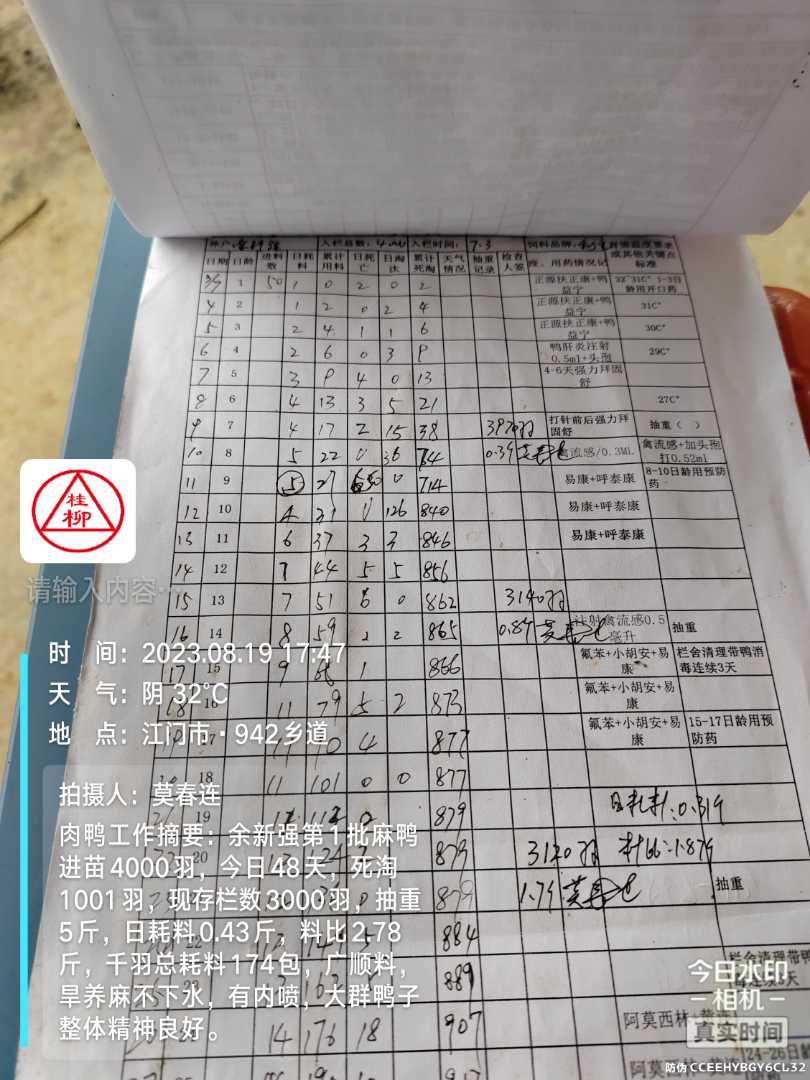 养户 入栏总数: 4000 入栏时间: 7.3 饲料品牌:
日期 日龄 进料数 日耗料 累计用料 日死亡 日淘汰 累计死淘 天气情况 抽重记录 检查人签 用药情况记 育雏温度要求或其他关键点标准
1 50 1 0 2 0 2 正源扶正康+鸭益宁 32~31C° 1-3日龄用开口药
4 2 1 2 0 2 4 正源扶正康+鸭益宁 31C°
5 3 2 4 1 1 6 正源扶正康+鸭益宁 30C°
6 4 2 6 0 3 9 鸭肝炎注射0.5ml+头孢 29C°
7 5 3 9 4 0 13 4-6天强力拜固舒
8 6 4 13 3 5 21 27C°
9 7 4 17 2 15 38 3970羽 打针前后强力拜固舒 抽重（ ）
10 8 5 22 0 36 74 0.39 禽流感/0.3ML 禽流感+加头孢打0.52ml
11 9 5 27 0 714 易康+呼泰康 8-10日龄用预防药
12 10 4 31 0 126 840 易康+呼泰康
13 11 6 37 3 3 846 易康+呼泰康
14 12 7 44 5 5 856
15 13 7 51 6 0 862 3140羽
16 14 8 59 2 2 865 0.89 注射禽流感0.5毫升 抽重
17 15 9 68 1 866 氟苯+小胡安+易康 栏舍清理带鸭消毒连续3天
18 16 11 79 5 2 873 氟苯+小胡安+易康
17 4 877 氟苯+小胡安+易康 15-17日龄用预防药
18 11 101 0 0 877
19 12 879 日耗料:0.319
20 879 3120羽 料比:1.879
879 1.79 抽重
22 884
889 栏舍清理带鸭
14 176 18 907 阿莫西林+
24-26日龄
阿莫西林
桂柳
请输入内容…
时 间: 2023.08.19 17:47
天 气: 阴 32℃
地 点: 江门市·942乡道
拍摄人: 莫春连
肉鸭工作摘要: 余新强第1批麻鸭
进苗4000羽，今日48天，死淘
1001羽，现存栏数3000羽，抽重
5斤，日耗料0.43斤，料比2.78
斤，千羽总耗料174包，广顺料，
旱养麻不下水，有内喷，大群鸭子
整体精神良好。
今日水印
相机
真实时间
防伪 CCEEHYBGY6CL32